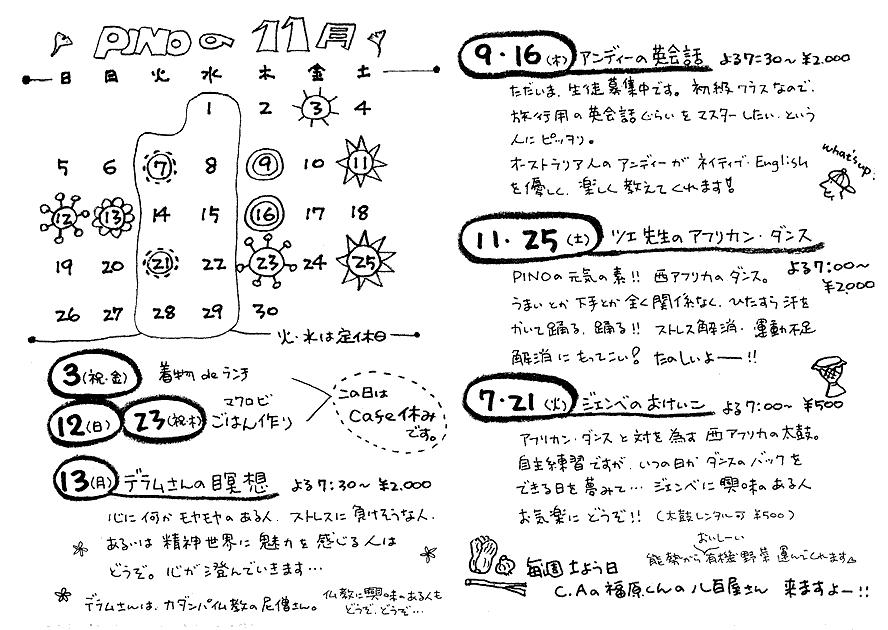 PINOの11月
日 月 火 水 木 金 土
1 2 3 4
5 6 7 8 9 10 11
12 13 14 15 16 17 18
19 20 21 22 23 24 25
26 27 28 29 30
火・水は定休日
3(祝・金) 着物deランチ
12(日) 23(祝・木) マクロビ
ごはん作り
この日は
Cafe休み
です。
13(月) デラムさんの瞑想 よる7:30〜 ¥2.000
心に何かモヤモヤのある人、ストレスに負けそうな人、
あるいは精神世界に魅力を感じる人は
どうぞ。心が澄んでいきます…
デラムさんは、カダンパ仏教の尼僧さん。
仏教に興味のある人も
どうぞ、どうぞ…
9・16(木) アンディーの英会話 よる7:30〜 ¥2.000
ただいま、生徒募集中です。初級クラスなので、
旅行用の英会話ぐらいをマスターしたい、という
人にピッタリ。
オーストラリア人のアンディーがネイティブ・English
を優しく、楽しく教えてくれます!!
what's up?
11・25(土) ツェ先生のアフリカン・ダンス
よる7:00〜
¥2,000
PINOの元気の素!! 西アフリカのダンス。
うまいとか下手とか全く関係なく、ひたすら汗を
かいて踊る、踊る!! ストレス解消・運動不足
解消にもってこい? たのしいよー!!
7・21(火) ジェンベのおけいこ よる7:00〜 ¥500
アフリカン・ダンスと対を為す西アフリカの太鼓。
自主練習ですが、いつの日かダンスのバックを
できる日を夢みて… ジェンベに興味のある人
お気楽にどうぞ!! (太鼓レンタル可 ¥500)
おいしーい
能登から有機野菜運んでくれます
毎週土よう日
C.Aの福原くんの八百屋さん 来ますよー!!